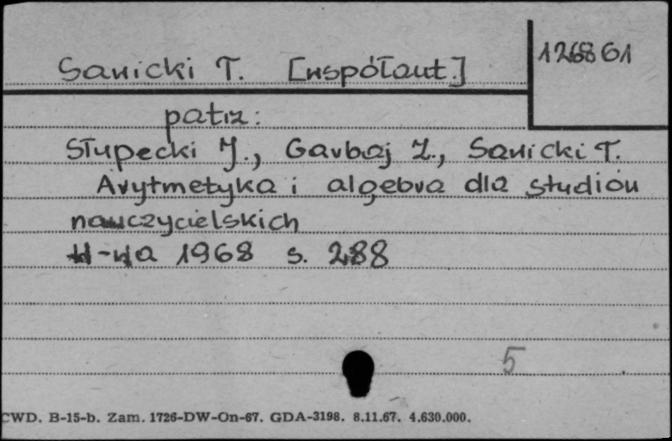 Sawicki T. [współaut.]
126861
patrz:
Słupecki J., Garbaj Z., Sawicki T.
Arytmetyka i algebra dla studiów
nauczycielskich
W-wa 1968 s. 288
5
CWD. B-15-b. Zam. 1726-DW-On-67. GDA-3198. 8.11.67. 4.630.000.